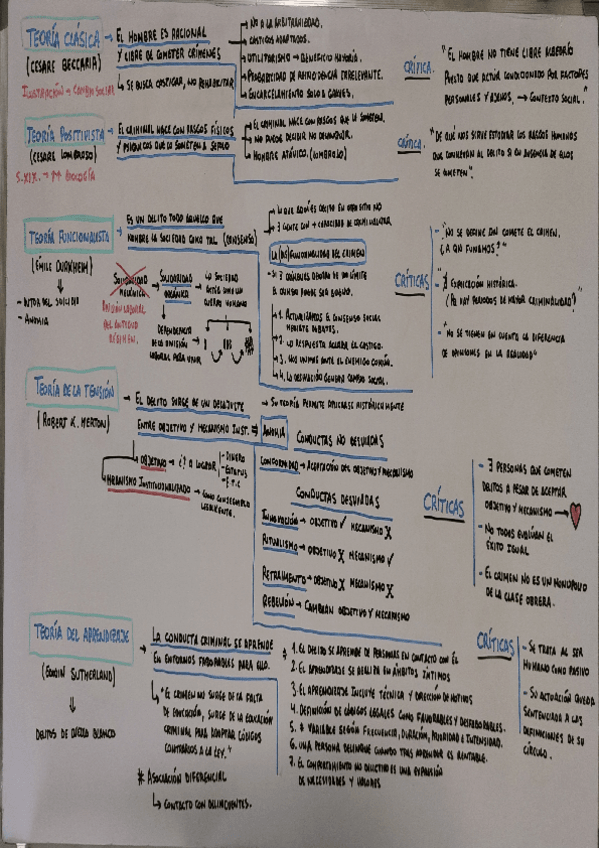 TEORÍA CLÁSICA → EL HOMBRE ES RACIONAL
(CESARE BECCARIA) Y LIBRE DE COMETER CRÍMENES
ILUSTRACIÓN → CAMBIO SOCIAL
↳ SE BUSCA CASTIGAR, NO REHABILITAR
→ NO A LA ARBITRARIEDAD.
→ CASTIGOS ADAPTADOS.
→ UTILITARISMO → BENEFICIO MAYORÍA.
→ PROBABILIDAD DE REINCIDENCIA IRRELEVANTE.
→ ENCARCELAMIENTO SOLO A GRAVES.
CRÍTICA.
"EL HOMBRE NO TIENE LIBRE ALBEDRÍO
PUESTO QUE ACTÚA CONDICIONADO POR FACTORES
PERSONALES Y AJENOS, → CONTEXTO SOCIAL."
TEORÍA POSITIVISTA → EL CRIMINAL NACE CON RASGOS FÍSICOS
(CESARE LOMBROSO) Y PSÍQUICOS QUE LO SOMETEN A SERLO
S.XIX. → BIOLOGÍA
→ EL CRIMINAL NACE CON RASGOS QUE LO SOMETEN.
→ NO PUEDE DECIDIR NO DELINQUIR.
→ HOMBRE ATÁVICO. (LOMBROSO)
CRÍTICA.
"DE QUÉ NOS SIRVE ESTUDIAR LOS RASGOS HUMANOS
QUE CONLLEVAN AL DELITO SI EN AUSENCIA DE ELLOS
SE COMETEN".
TEORÍA FUNCIONALISTA → ES UN DELITO TODO AQUELLO QUE
NOMBRE LA SOCIEDAD COMO TAL. (CONSENSO)
(ÉMILE DURKHEIM)
- AUTOR DEL SUICIDIO
- ANOMIA
SOLIDARIDAD MECÁNICA → SOLIDARIDAD ORGÁNICA → LA SOCIEDAD
ACTÚA COMO UN
CUERPO HUMANO
DIVISIÓN LABORAL
DEL ANTIGUO
RÉGIMEN.
DEPENDENCIA
DE LA DIVISIÓN
LABORAL PARA VIVIR
→ LO QUE AQUÍ ES DELITO EN OTRO SITIO NO
→ ∃ GENTE CON + CAPACIDAD DE CRIMINALIZAR.
LA (DIS)FUNCIONALIDAD DEL CRIMEN
- SI ∃ CRÍMENES DENTRO DE UN LÍMITE
EL CRIMEN PUEDE SER BUENO.
1. ACTUALIZAMOS EL CONSENSO SOCIAL
MEDIANTE DEBATES.
2. LA RESPUESTA ACLARA EL CASTIGO.
3. NOS UNIMOS ANTE EL ENEMIGO COMÚN.
4. LA DESVIACIÓN GENERA CAMBIO SOCIAL.
CRÍTICAS
- "NO SE DEFINE QN COMETE EL CRIMEN.
¿A QN FUNAMOS?"
- "∄ EXPLICACIÓN HISTÓRICA.
(PQ HAY PERIODOS DE MAYOR CRIMINALIDAD?"
- "NO SE TIENEN EN CUENTA LA DIFERENCIA
DE OPINIONES EN LA REALIDAD"
TEORÍA DE LA TENSIÓN → EL DELITO SURGE DE UN DESAJUSTE → SU TEORÍA PERMITE APLICARSE HISTÓRICAMENTE
(ROBERT K. MERTON) ENTRE OBJETIVO Y MECANISMO INST. = ANOMIA
OBJETIVO → ¿? A LOGRAR
- DINERO
- ESTATUS
- ETC
MECANISMO INSTITUCIONALIZADO → COMO CONSEGUIRLO
LEGALMENTE.
CONDUCTAS NO DESVIADAS
CONFORMIDAD → ACEPTACIÓN DEL OBJETIVO Y MECANISMO
CONDUCTAS DESVIADAS
INNOVACIÓN → OBJETIVO ✓ MECANISMO X
RITUALISMO → OBJETIVO X MECANISMO ✓
RETRAIMIENTO → OBJETIVO X MECANISMO X
REBELIÓN → CAMBIAN OBJETIVO Y MECANISMO
CRÍTICAS
- ∃ PERSONAS QUE COMETEN
DELITOS A PESAR DE ACEPTAR
OBJETIVO Y MECANISMO →
- NO TODOS EVALÚAN EL
ÉXITO IGUAL
- EL CRIMEN NO ES UN MONOPOLIO
DE LA CLASE OBRERA.
TEORÍA DEL APRENDIZAJE → LA CONDUCTA CRIMINAL SE APRENDE
EN ENTORNOS FAVORABLES PARA ELLO.
(EDWIN SUTHERLAND)
⇓
DELITOS DE CUELLO BLANCO
↳ "EL CRIMEN NO SURGE DE LA FALTA
DE EDUCACIÓN, SURGE DE LA EDUCACIÓN
CRIMINAL PARA ADOPTAR CÓDIGOS
CONTRARIOS A LA LEY."
* ASOCIACIÓN DIFERENCIAL
↳ CONTACTO CON DELINCUENTES.
1. EL DELITO SE APRENDE DE PERSONAS EN CONTACTO CON ÉL
2. EL APRENDIZAJE SE REALIZA EN ÁMBITOS ÍNTIMOS
3. EL APRENDIZAJE INCLUYE TÉCNICA Y DIRECCIÓN DE MOTIVOS
4. DEFINICIÓN DE CÓDIGOS LEGALES COMO FAVORABLES Y DESFAVORABLES.
5. * VARIABLE SEGÚN FRECUENCIA, DURACIÓN, PRIORIDAD E INTENSIDAD.
6. UNA PERSONA DELINQUE CUANDO TRAS APRENDER ES RENTABLE.
7. EL COMPORTAMIENTO NO DELICTIVO ES UNA EXPANSIÓN
DE NECESIDADES Y VALORES
CRÍTICAS
- SE TRATA AL SER
HUMANO COMO PASIVO
- SU ACTUACIÓN QUEDA
SENTENCIADA A LAS
DEFINICIONES DE SU
CÍRCULO.